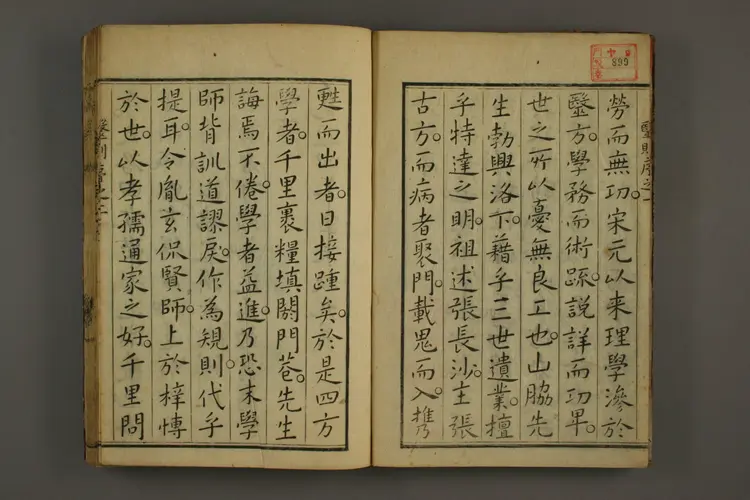 勞而無功。宋元以来理學滲於
醫方。學務而術踈。説詳而功畢。
世之所以憂無良工也。山脇先
生勃興洛下。藉乎三世遺業。擅
乎特達之明。祖述張長沙。主張
古方。而病者聚門。載鬼而入。攜
甦而出者。日接踵矣。於是四方
學者。千里裹糧填闕門巷。先生
誨焉不倦。學者益進。乃恐末學
師背訓道謬戾。作為規則。代乎
提耳。令胤玄侃賢師。上於梓慱
於世。以孝孺通家之好。千里問
醫則序之
899